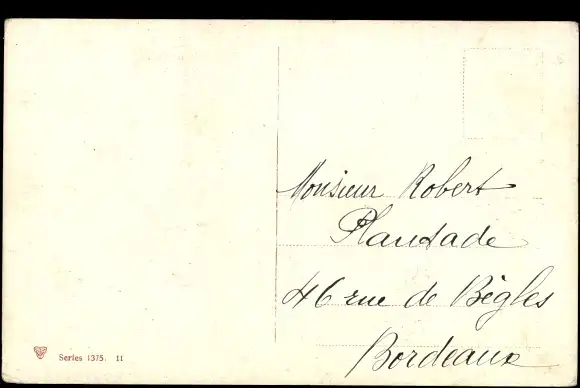 Monsieur Robert
Plantade
46 rue de Bègles
Bordeaux
Series 1375. 11